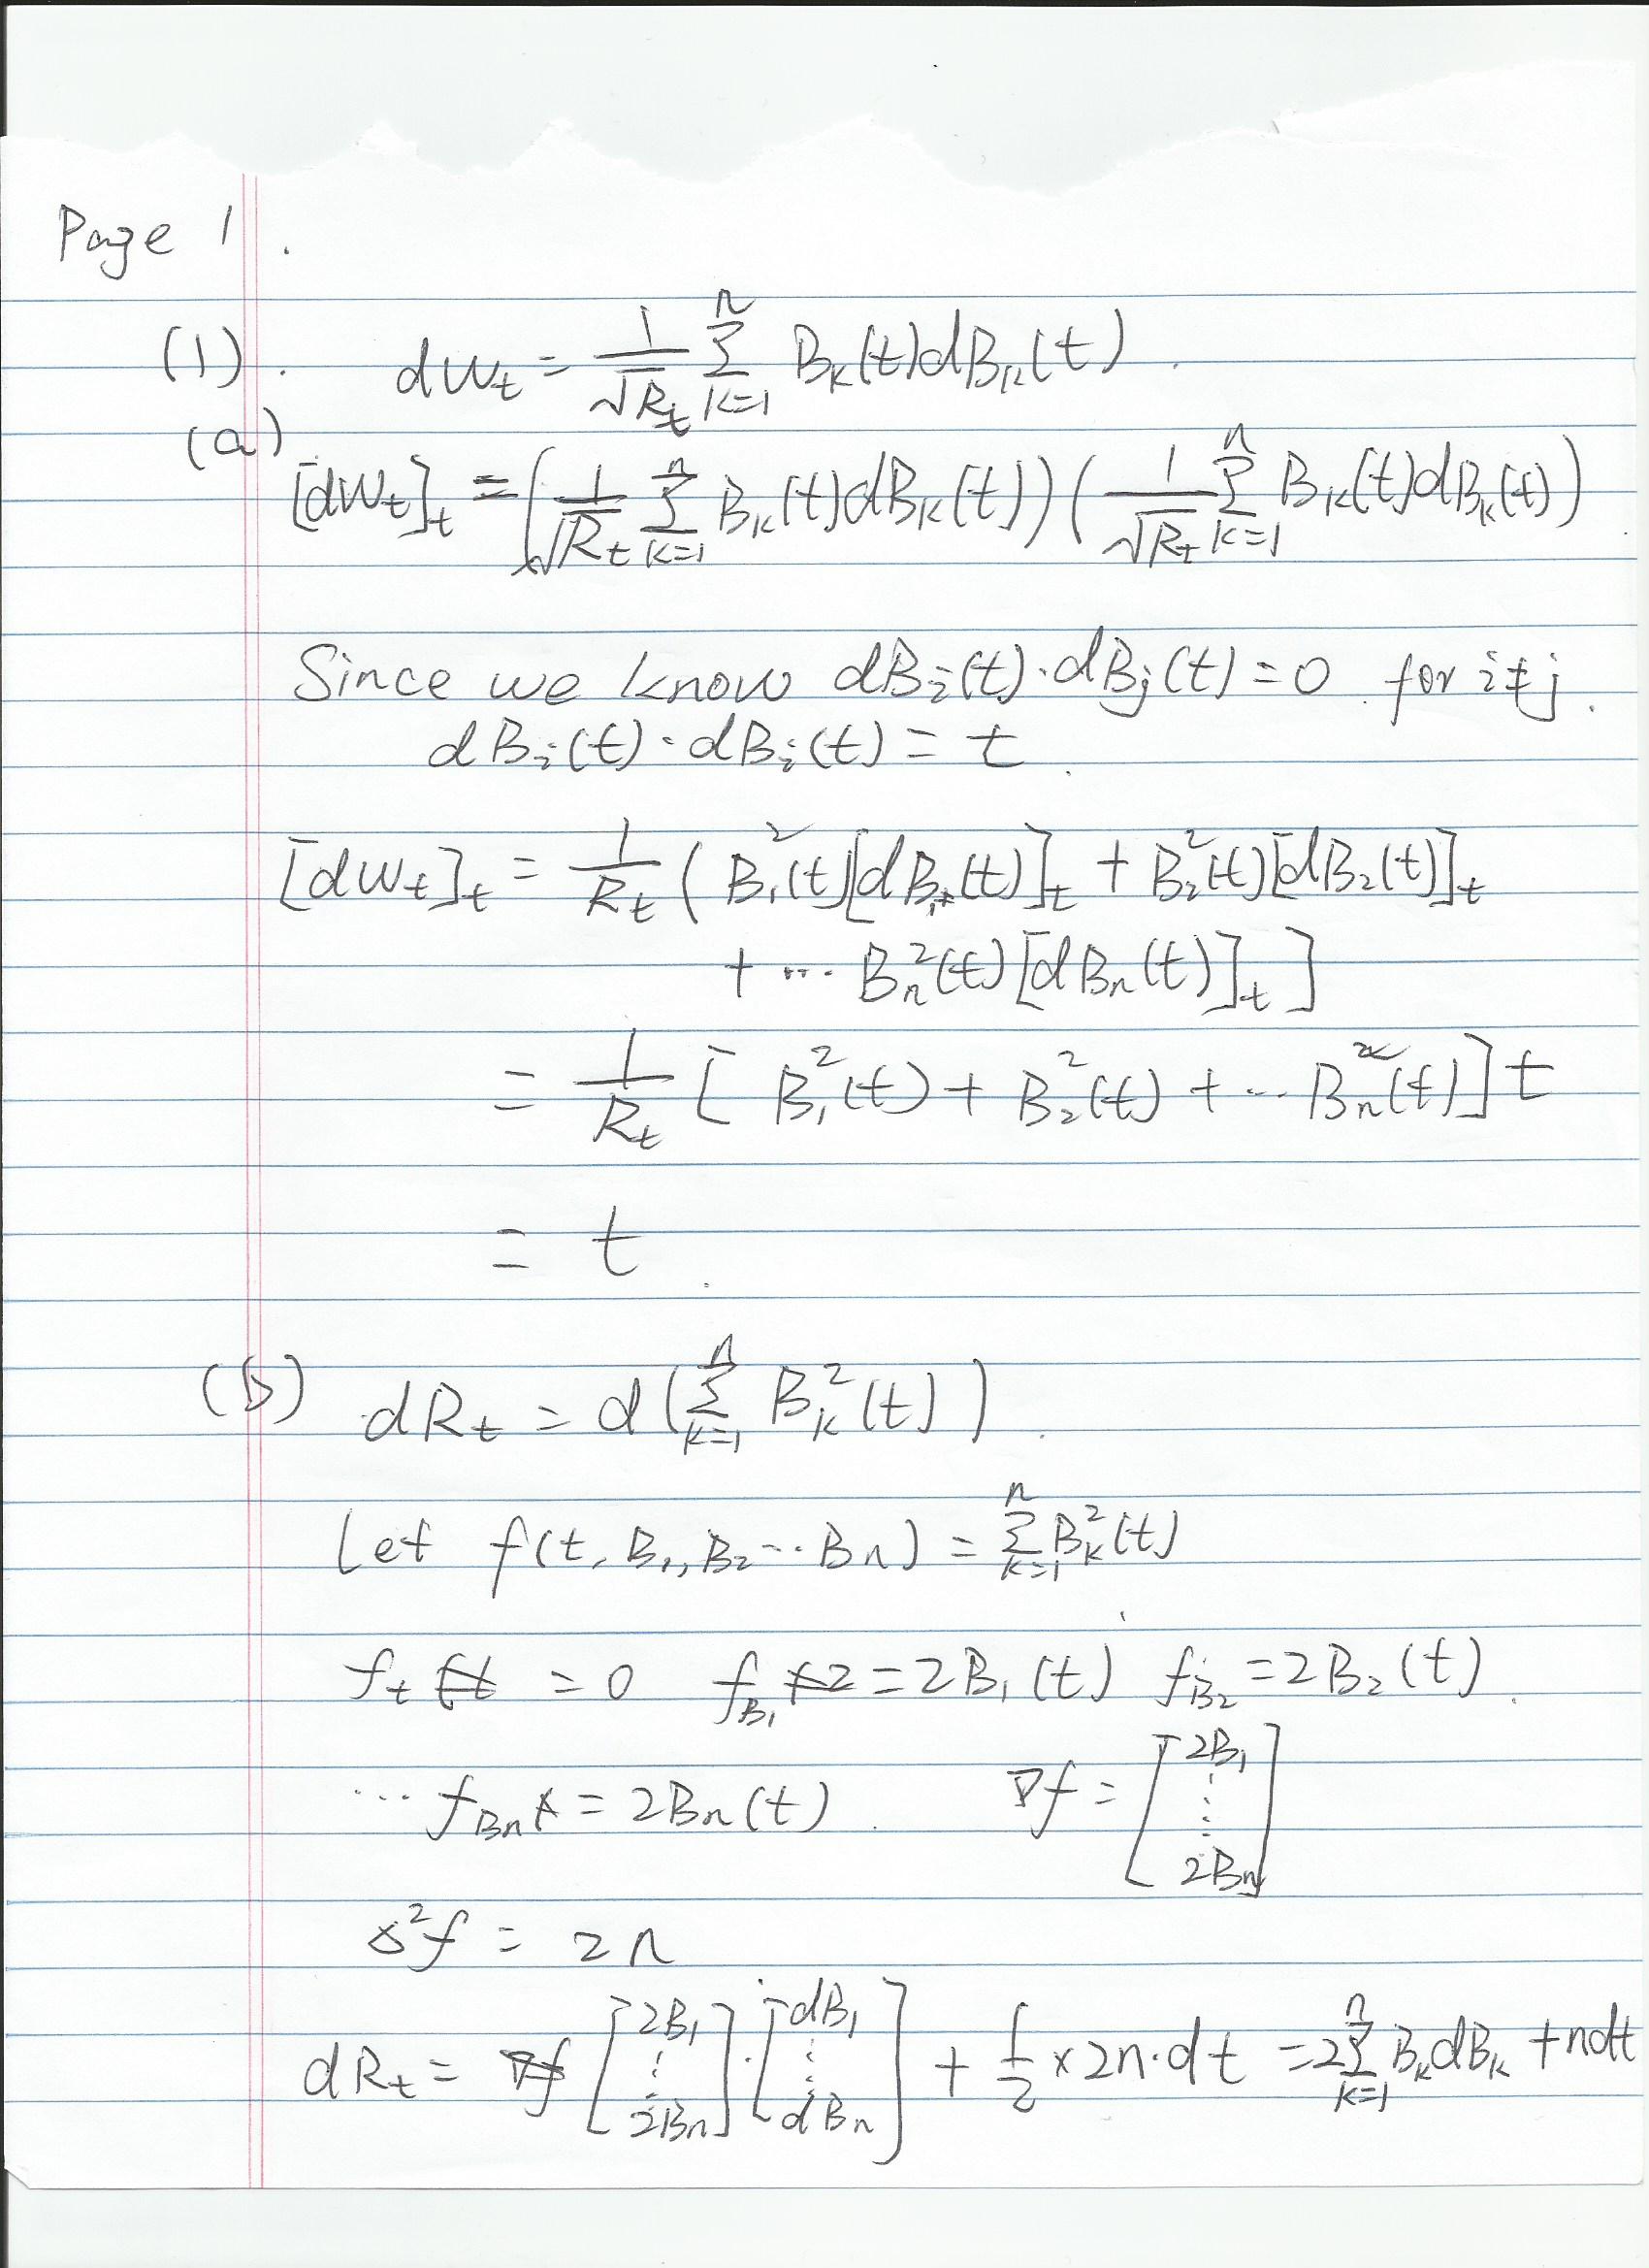 Page 1.
(1). dW_t = 1/√R_t Σ_{k=1}^{n} B_k(t)dB_k(t).
(a)
[dW_t]_t = (1/√R_t Σ_{k=1}^{n} B_k(t)dB_k(t)) (1/√R_t Σ_{k=1}^{n} B_k(t)dB_k(t))
Since we know dB_i(t)·dB_j(t) = 0 for i≠j.
dB_i(t)·dB_i(t) = t.
[dW_t]_t = 1/R_t (B_1^2(t)[dB_1(t)]_t + B_2^2(t)[dB_2(t)]_t
+ ... B_n^2(t)[dB_n(t)]_t]
= 1/R_t [B_1^2(t) + B_2^2(t) + ... B_n^2(t)] t
= t.
(b) dR_t = d(Σ_{k=1}^{n} B_k^2(t)).
Let f(t, B_1, B_2 ... B_n) = Σ_{k=1}^{n} B_k^2(t)
f_t = 0 f_{B_1} = 2B_1(t) f_{B_2} = 2B_2(t).
... f_{B_n} = 2B_n(t). ∇f = [2B_1 ⋮ 2B_n]
Δ^2f = 2n
dR_t = [2B_1 ⋮ 2B_n]·[dB_1 ⋮ dB_n] + 1/2 × 2n·dt = 2Σ_{k=1}^{n} B_k dB_k + ndt